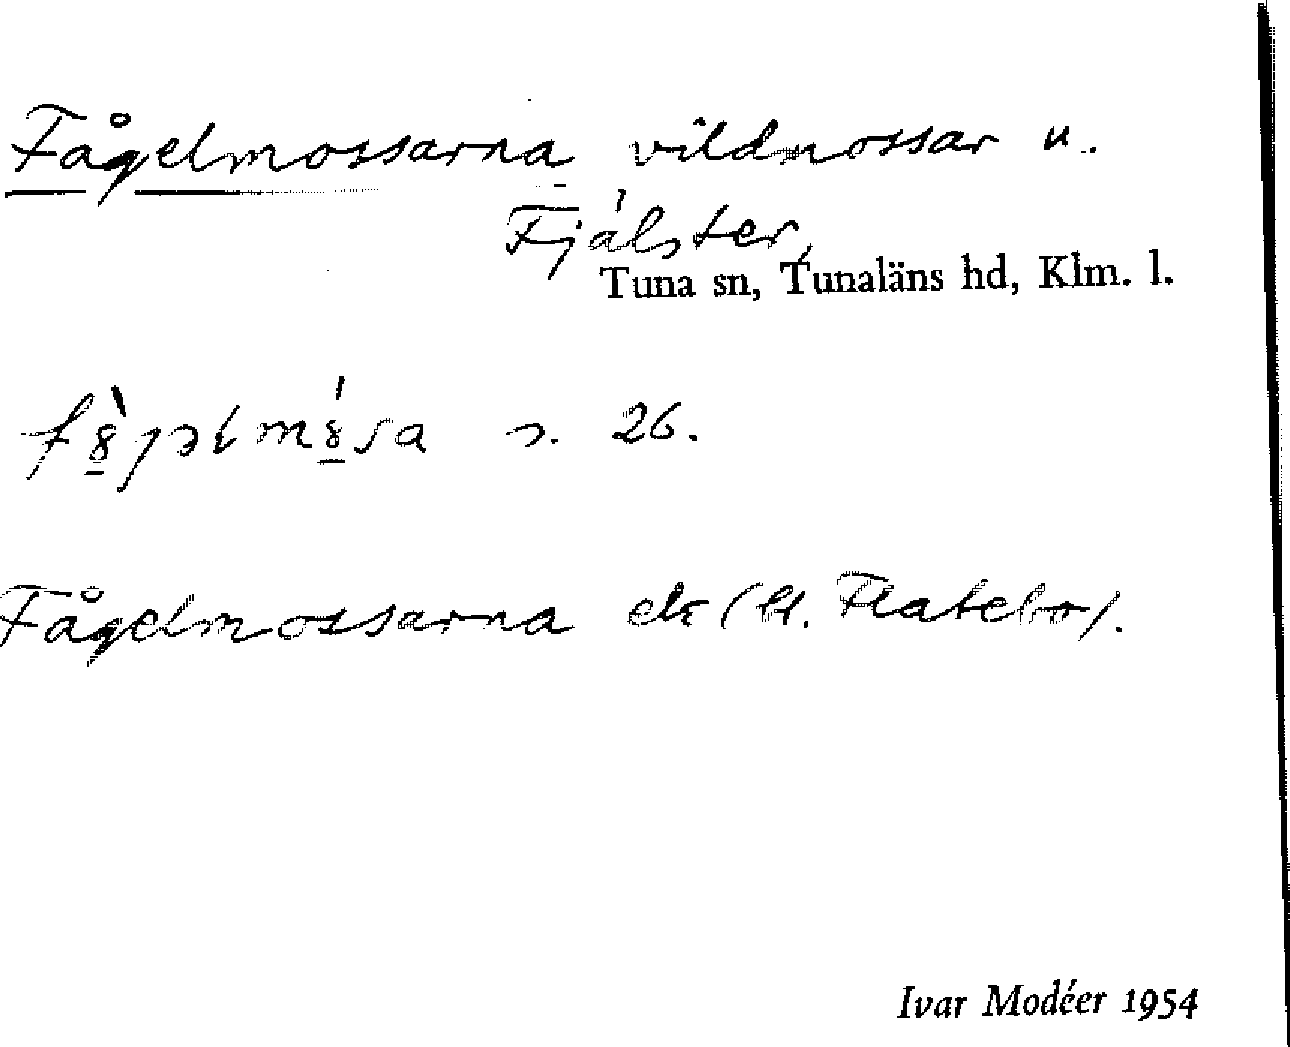 Fågelmossarna vildmossar u.
Fjälster,
Tuna sn, Tunaläns hd, Klm. l.
s. 26.
Fågelmossarna ek (lt. Flatebo).
Ivar Modéer 1954